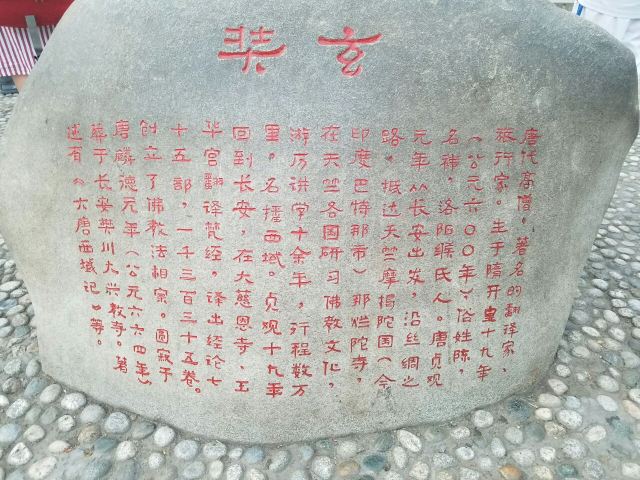 玄奘
唐代高僧，著名的翻译家、
旅行家。生于隋开皇十九年
（公元六〇〇年），俗姓陈，
名祎，洛阳缑氏人。唐贞观
元年从长安出发，沿丝绸之
路，抵达天竺摩揭陀国（今
印度巴特那市）那烂陀寺，
在天竺各国研习佛教文化，
游历讲学十余年，行程数万
里，名播西域。贞观十九年
回到长安，在大慈恩寺、玉
华宫翻译梵经，译出经论七
十五部，一千三百三十五卷。
创立了佛教法相宗。圆寂于
唐麟德元年（公元六六四年），
葬于长安樊川大兴教寺。著
述有《大唐西域记》等。